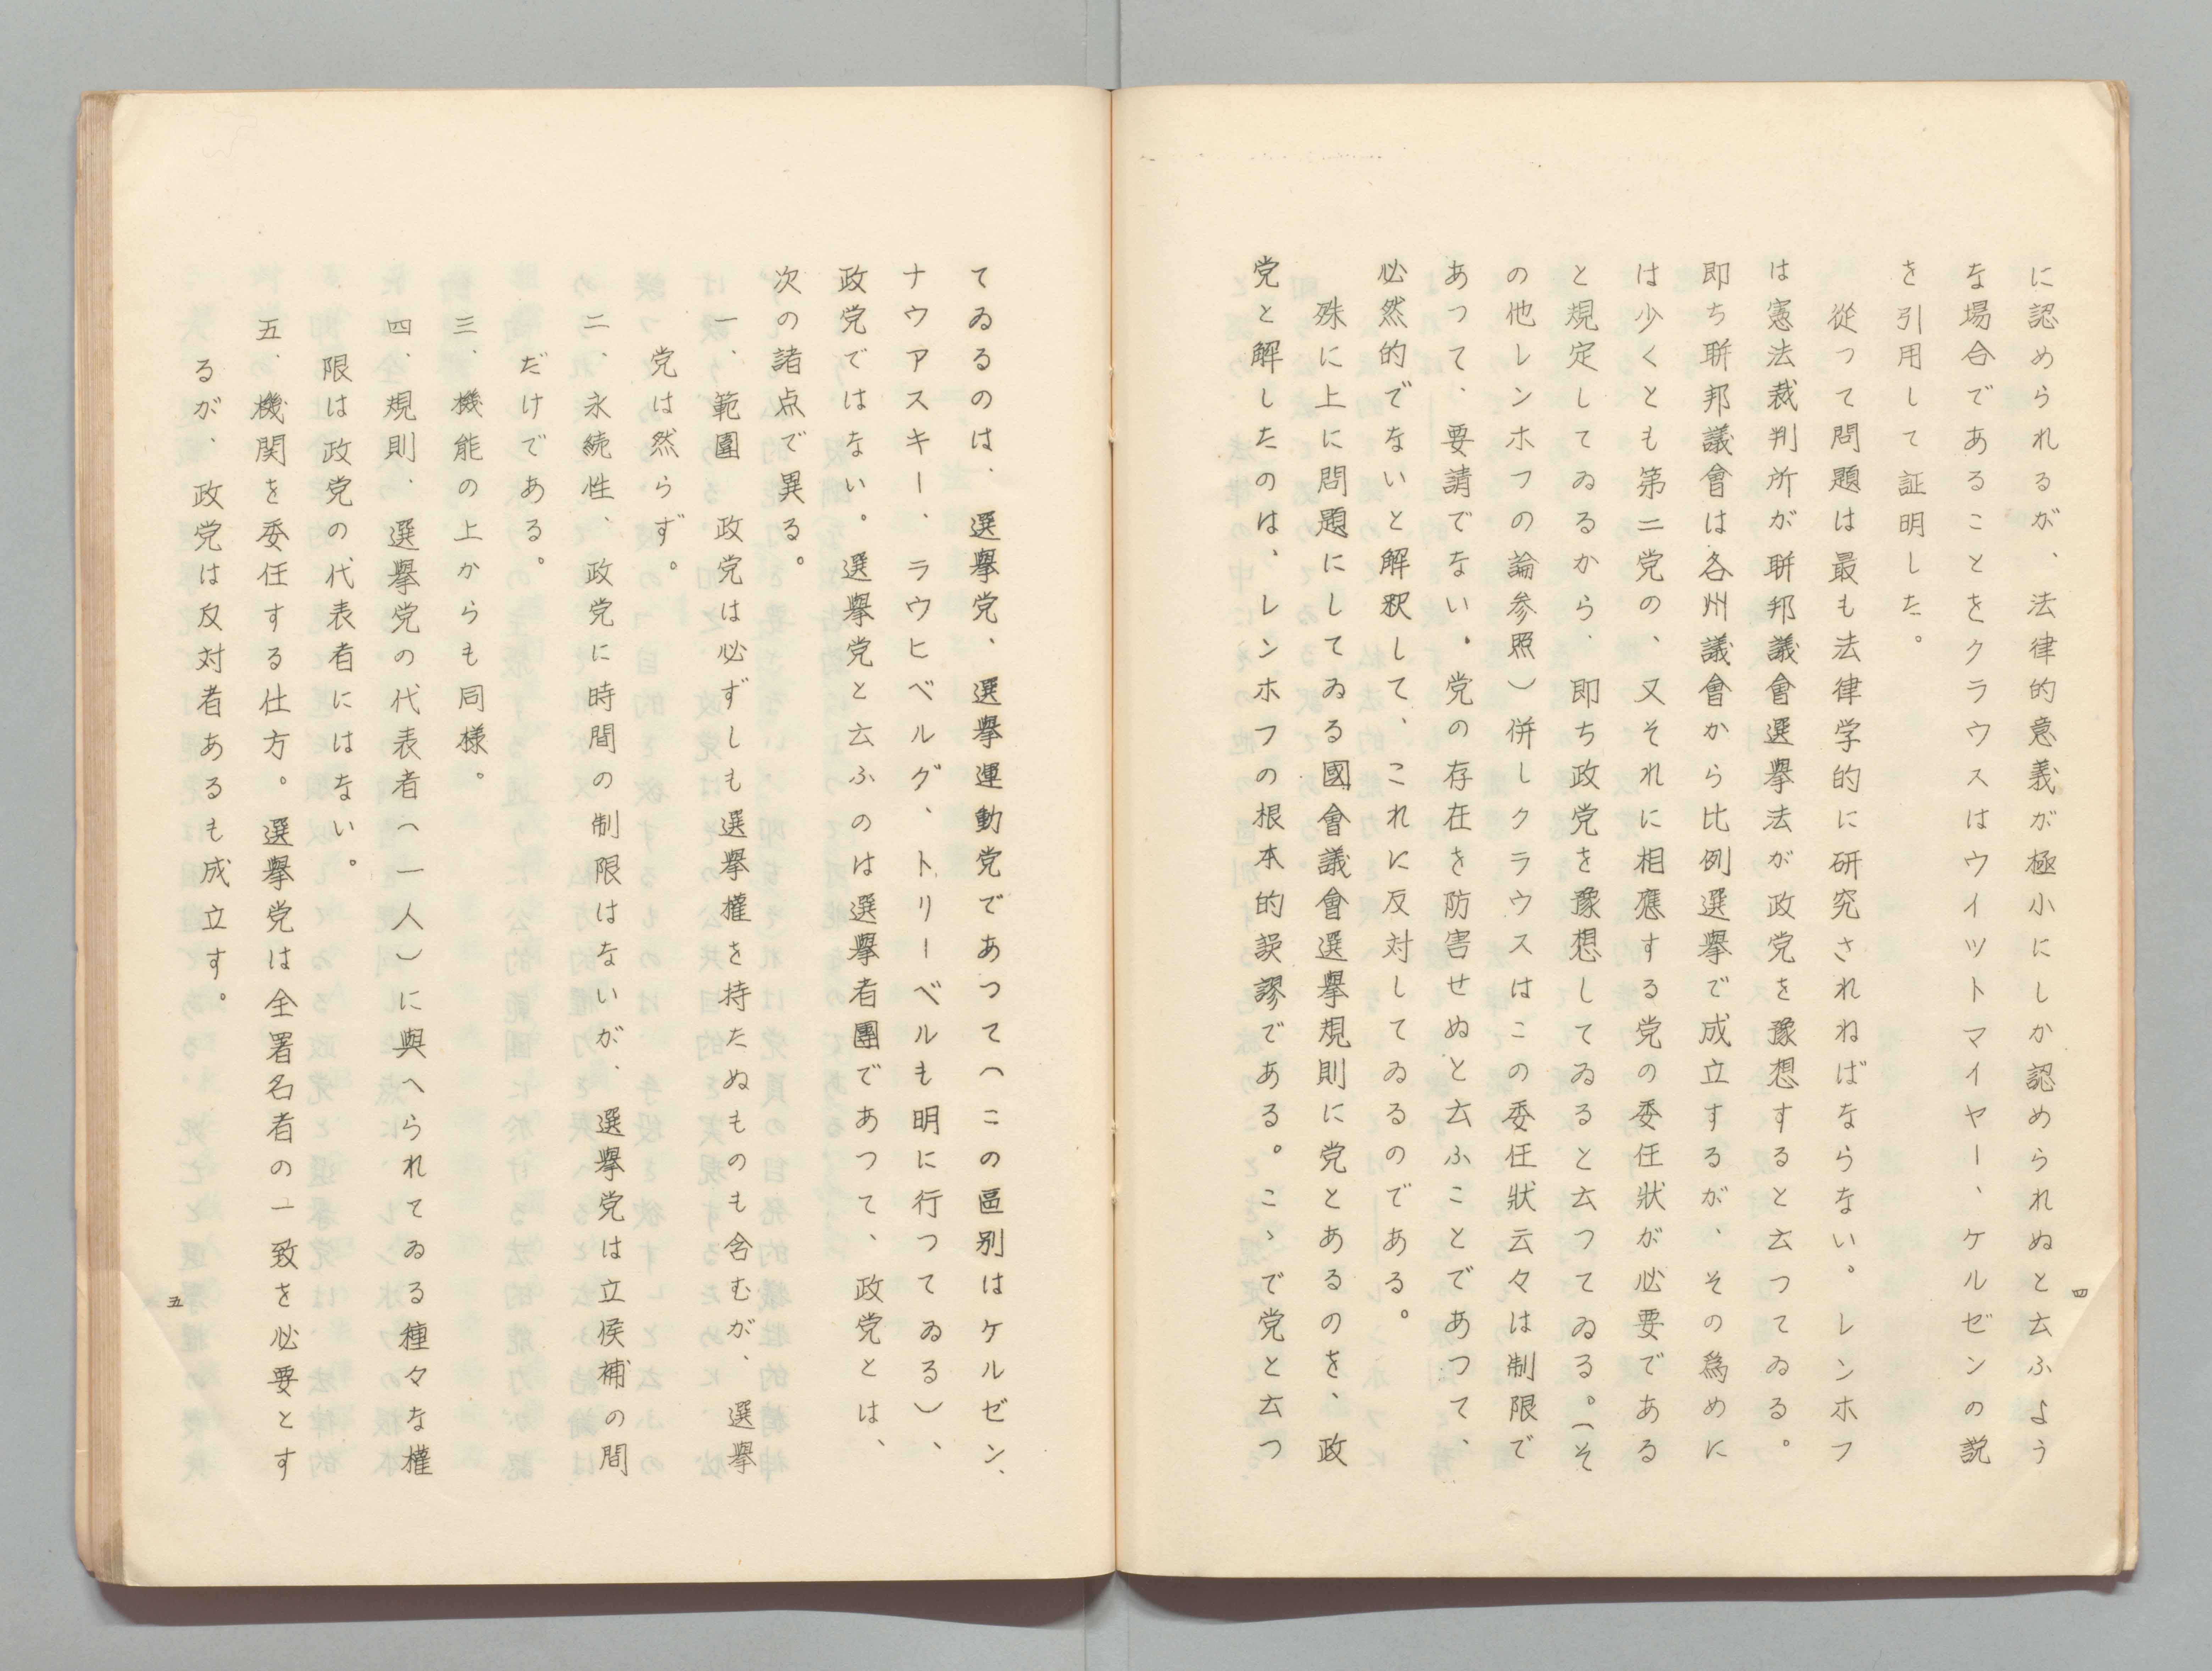 に認められるが、法律的意義が極小にしか認められぬと云ふよう
な場合であることをクラウスはウイットマイヤー、ケルゼンの説
を引用して証明した。
従つて問題は最も法律学的に研究されねばならない。レンホフ
は憲法裁判所が聯邦議會選擧法が政党を豫想すると云つてゐる。
即ち聯邦議會は各州議會から比例選擧で成立するが、その爲めに
は少くとも第二党の、又それに相應する党の委任狀が必要である
と規定してゐるから、即ち政党を豫想してゐると云つてゐる。(そ
の他レンホフの論参照)併しクラウスはこの委任狀云々は制限で
あつて、要請でない。党の存在を防害せぬと云ふことであつて、
必然的でないと解釈して、これに反対してゐるのである。
殊に上に問題にしてゐる國會議會選擧規則に党とあるのを、政
党と解したのは、レンホフの根本的誤謬である。こゝで党と云つ
四
てゐるのは、選擧党、選擧運動党であつて(この區別はケルゼン、
ナウアスキー、ラウヒベルグ、トリーベルも明に行つてゐる)、
政党ではない。選擧党と云ふのは選擧者團であつて、政党とは、
次の諸点で異る。
一、範圍 政党は必ずしも選擧權を持たぬものも含むが、選擧
党は然らず。
二、永続性、政党に時間の制限はないが、選擧党は立侯補の間
だけである。
三、機能の上からも同様。
四、規則、選擧党の代表者(一人)に與へられてゐる種々な權
限は政党の代表者にはない。
五、機関を委任する仕方。選擧党は全署名者の一致を必要とす
るが、政党は反対者あるも成立す。
五